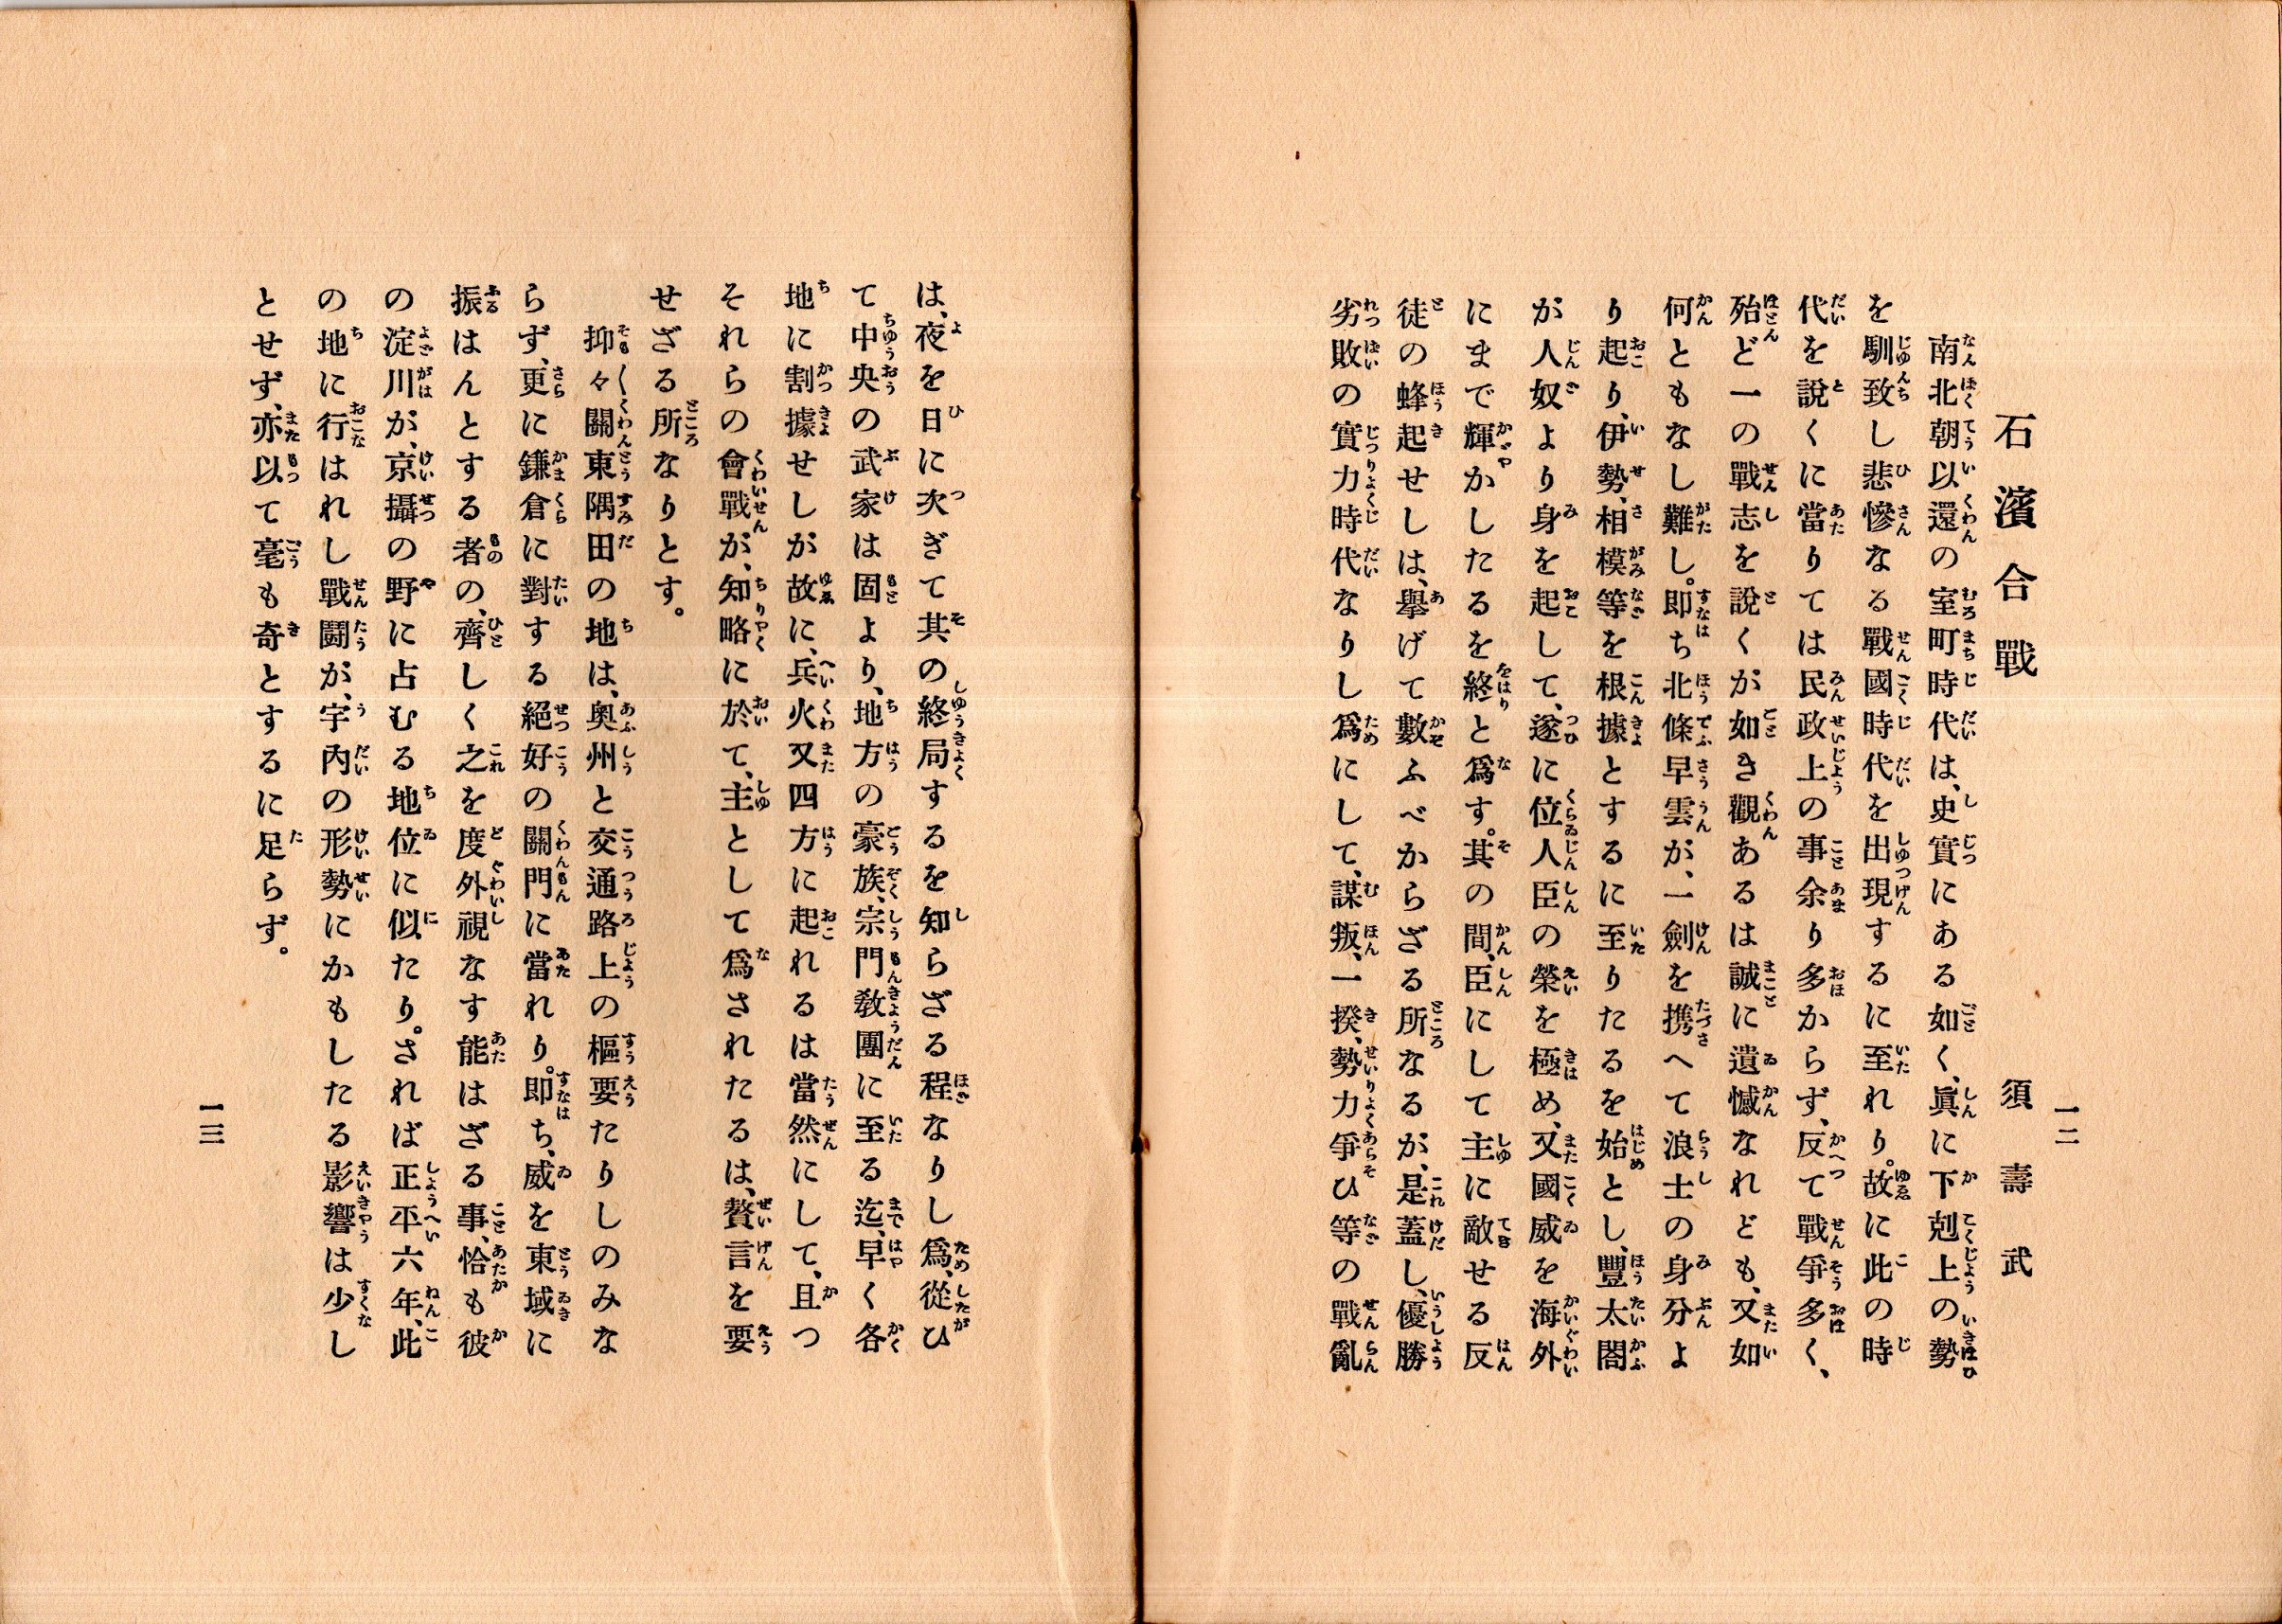 一二
石濱合戰
須壽武
南北朝以還の室町時代は、史實にある如く、眞に下剋上の勢
を馴致し悲慘なる戰國時代を出現するに至れり。故に此の時
代を說くに當りては民政上の事余り多からず、反つて戰爭多く、
殆ど一の戰志を說くが如き觀あるは誠に遺憾なれども、又如
何ともなし難し。即ち北條早雲が、一劍を携へて浪士の身分よ
り起り、伊勢、相模等を根據とするに至りたるを始とし、豐太閤
が人奴より身を起して、遂に位人臣の榮を極め、又國威を海外
にまで輝かしたるを終と爲す。其の間、臣にして主に敵せる反
徒の蜂起せしは、擧げて數ふべからざる所なるが、是蓋し、優勝
劣敗の實力時代なりし爲にして、謀叛、一揆、勢力爭ひ等の戰亂
は、夜を日に次ぎて其の終局するを知らざる程なりし爲、從ひ
て中央の武家は固より、地方の豪族、宗門敎團に至る迄、早く各
地に割據せしが故に、兵火又四方に起れるは當然にして、且つ
それらの會戰が、知略に於て、主として爲されたるは、贅言を要
せざる所なりとす。
抑々關東隅田の地は、奧州と交通路上の樞要たりしのみな
らず、更に鎌倉に對する絕好の關門に當れり。即ち、威を東域に
振はんとする者の、齊しく之を度外視なす能はざる事、恰も彼
の淀川が、京攝の野に占むる地位に似たり。されば正平六年、此
の地に行はれし戰鬪が、宇內の形勢にかもしたる影響は少し
とせず、亦以て毫も奇とするに足らず。
一三